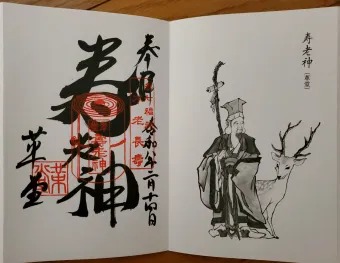 奉拝
令和 年二月十四日
寿老神
革堂
寿老神
（革堂）